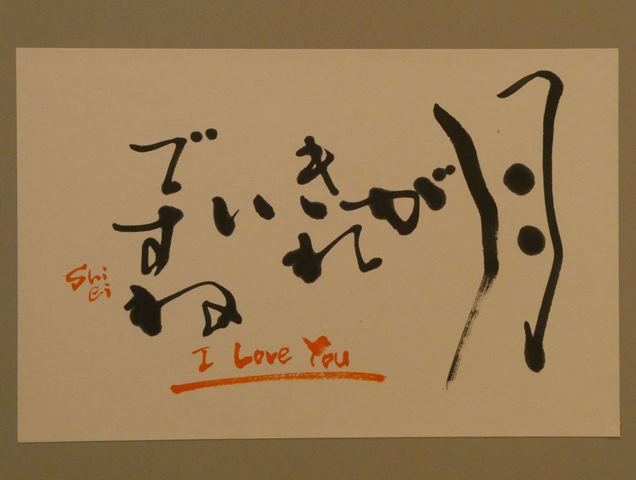 月が
きれ
い
ですね
I Love You
Shi
ei